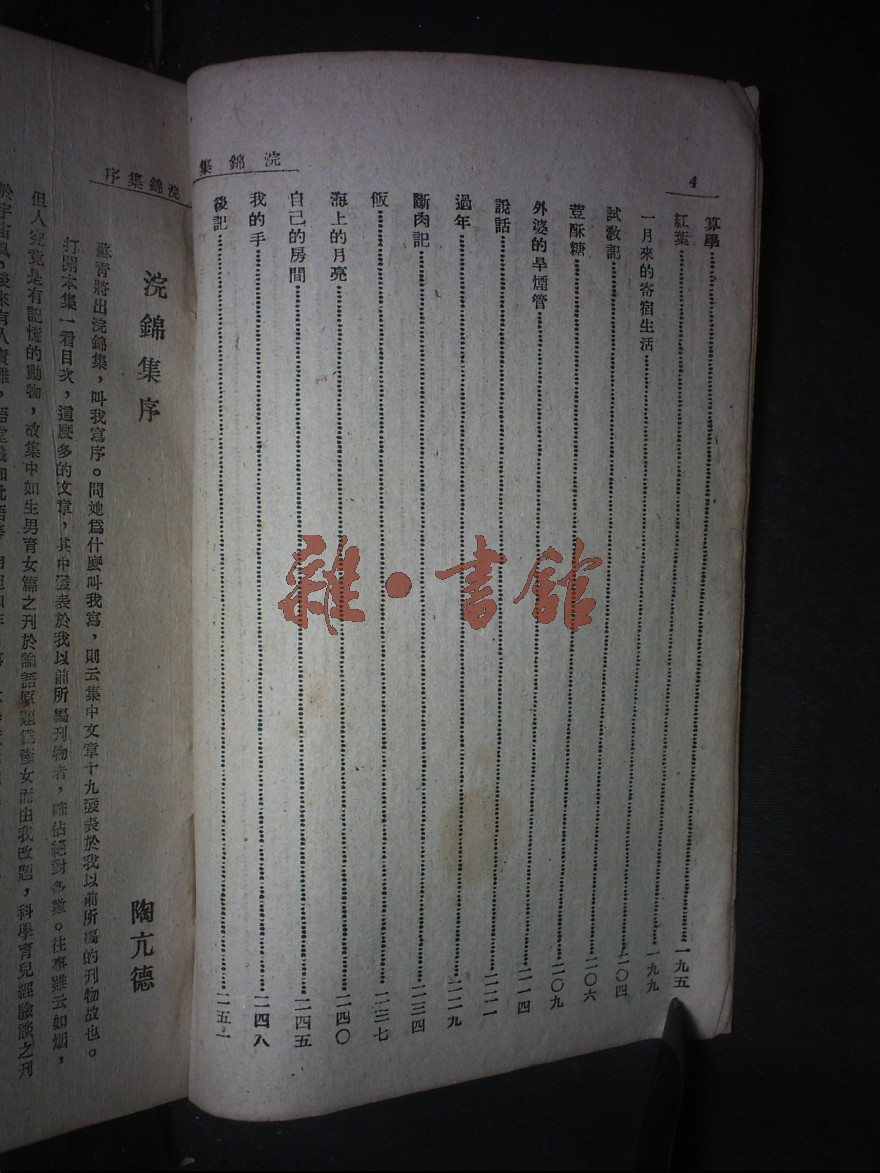 4
浣錦集
算學……一九五
紅葉……一九九
一月來的寄宿生活……二〇四
試教記……二〇六
荳酥糖……二〇九
外婆的旱煙管……二一四
說話……二二一
過年……二二九
斷肉記……二三四
飯……二三七
海上的月亮……二四〇
自己的房間……二四五
我的手……二四八
後記……二五一
浣錦集序
浣錦集序
陶亢德
蘇青將出浣錦集,叫我寫序。問她爲什麼叫我寫,則云集中文章十九發表於我以前所編的刊物故也。
打開本集一看目次,這麼多的文章,其中發表於我以前所編刊物者,確佔絕對多數。往事雖云如烟,
但人究竟是有記憶的動物,故集中如生男育女篇之刊於論語原題爲產女而由我改題,科學育兒經驗談之刊
於宇宙風,後來有人責難,
雜·書館